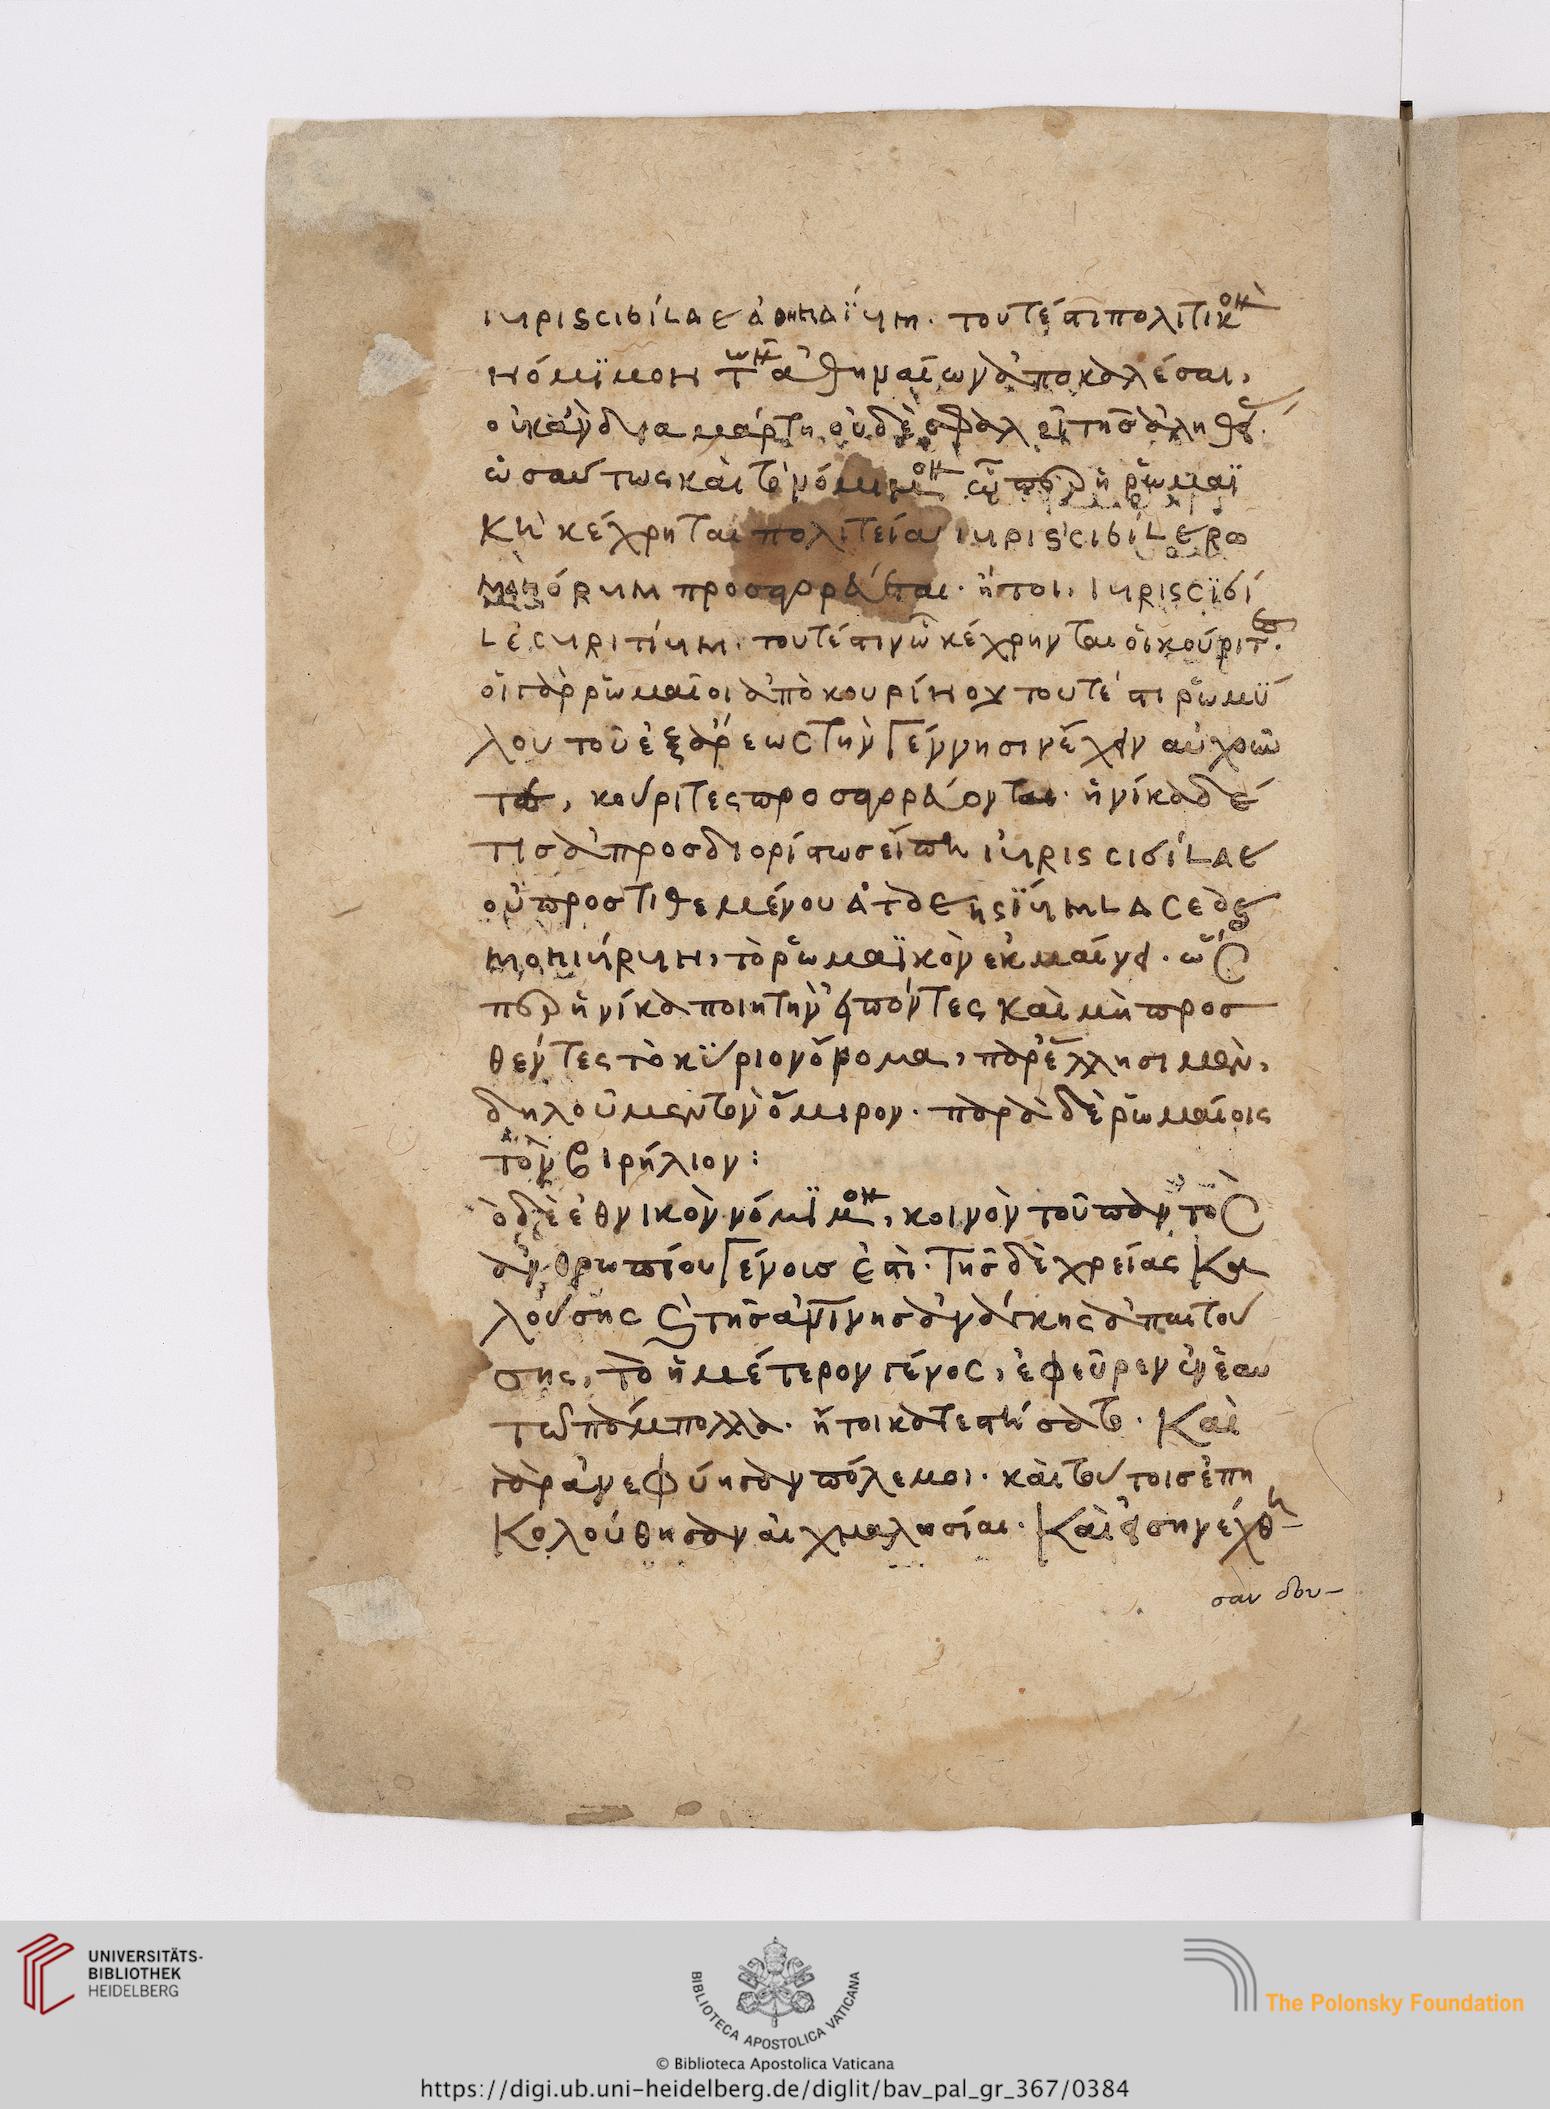 ιuριsciбίlae ἀθηnαΐum. τουτέστι πολιτικὸν
νόμϊμον τῶν ἀθηναίων ἀποκαλέσαι,
οὐκ ἂν διαμάρτη οὐδὲ σφαλεῖ τῆς ἀληθεί
ὡσαύτως καὶ τὸ νόμιμον ὧπερ ἡ ῥωμαϊ
κὴ κέχρηται πολιτεία iuριsciбίle rω
manόrum προσαγορεύεται. ἤτοι, iuriscϊбί
le curitίum. τουτέστιν ὧ κέχρηνται οἱ κούριται.
οἱ γὰρ ῥωμαῖοι ἀπὸ κουρίνου τουτέστι ῥωμύ
λου τοῦ ἐξ ἄρεως τὴν γέννησιν ἔχειν αὐχοῦν
τος, κούριτες προσαγορεύονται. ἡνίκα δέ
τις ἀπροσδιορίστως εἴπη ίuris ciбίlae
οὐ προστιθεμένου
moniύrum, τὸ ῥωμαϊκὸν ἐκμαίνει. ὥσ
περ ἡνίκα ποιητὴν εἰπόντες καὶ μὴ προσ
θέντες τὸ κύριον ὄνομα, παρ' ἕλλησι μὲν,
δηλοῦμεν τὸν ὅμιρον. παρὰ δὲ ῥωμαίοις
τὸν βιργήλιον:
ὁ δὲ ἐθνικὸν νόμϊμον, κοινὸν τοῦ παντὸς
ἀνθρωπίου γένοις ἐστὶ. τῆς δὲ χρείας κα
λούσης καὶ τῆς ἀνάγκης ἀπαιτού
σης, τὸ ἡμέτερον γένος, ἐφεῦρεν ἐν ἑαυ
τῶ πάμπολλα. ἤτοι κατεστήσατο. καὶ
γὰρ ἀνεφύησαν πόλεμοι. καὶ τούτοις ἐπη
κολούθησαν αἰχμαλωσίαι. καὶ εἰσηνέχθη
σαν δου-
UNIVERSITÄTS-
BIBLIOTHEK
HEIDELBERG
BIBLIOTECA APOSTOLICA VATICANA
The Polonsky Foundation
© Biblioteca Apostolica Vaticana
https://digi.ub.uni-heidelberg.de/diglit/bav_pal_gr_367/0384